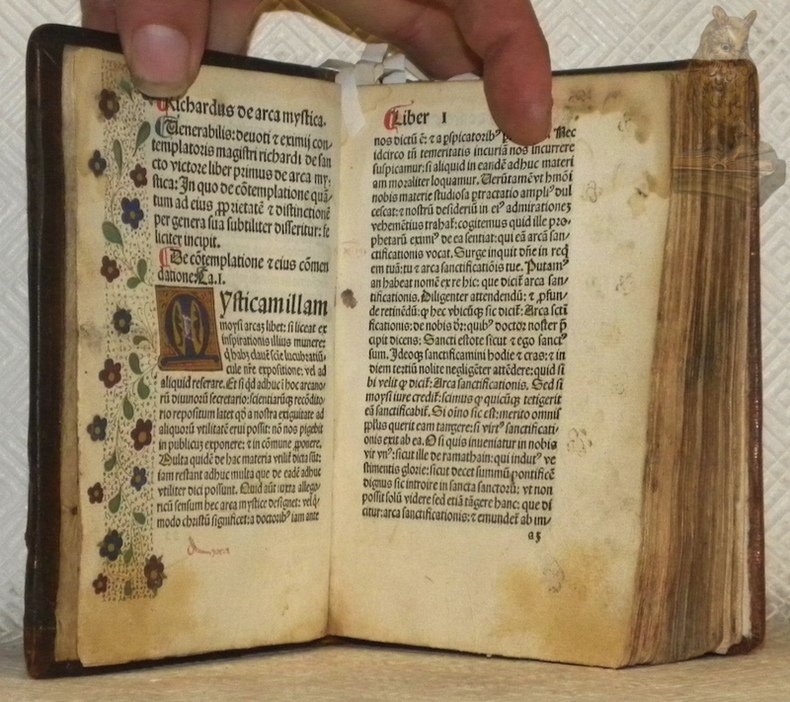 Richardus de arca mystica.
Venerabilis: deuoti ⁊ eximij con⸗
templatoris magistri richardi de san
cto victore liber primus de arca my⸗
stica: In quo de cõtemplatione quã⸗
tum ad eius ꝓprietatẽ ⁊ distinctionẽ
per genera sua subtiliter disseritur: fe
liciter incipit.
De cõtemplatione ⁊ eius cõmen
datione: Ca. I.
Mysticam illam
moysi arcaȝ libet: si liceat ex
inspirationis illius munere:
cule nr̃e expositione: vel ad
aliquid reserare. Et si qd adhuc ĩ hoc arcano⸗
rũ diuinorũ secretario: scientiarũqȝ recõdito⸗
rio repositum latet qð a nostra exiguitate ad
aliquorũ vtilitatẽ erui possit: nõ nos pigebit
in publicuȝ exponere: ⁊ in cõmune ꝓponere.
Multa quidẽ de hac materia vtilit̃ dicta sũt:
iam restant adhuc multa que de eadẽ adhuc
vtiliter dici possunt. Quid aũt iuxta allego⸗
ricũ sensum hec arca mystice designet: vel qͦ⸗
modo christũ significet: a doctoribꝰ iam ante
Liber I
nos dictũ ẽ: ⁊ a ꝑspicatoribꝰ Nec
idcirco tñ temeritatis incuriã nos incurrere
suspicamur: si aliquid in eandẽ adhuc materi
am moraliter loquamur. Verũtamẽ vt hmõi
nobis materie studiosa ꝑtractatio ampliꝰ dul
cescat: ⁊ nostrũ desideriũ in eiꝰ admirationeȝ
vehemẽtius trahat̃: cogitemus quid ille pro⸗
phetarũ eximiꝰ de ea sentiat: qui eã arcã san⸗
ctificationis vocat. Surge inquit dñe in reqͥ
em tuã: tu ⁊ arca sanctificatiõis tue. Putamꝰ
an habeat nomẽ ex re hic: que dicit̃ arca san⸗
ctificationis. Diligenter attendendũ: ⁊ ꝓfun⸗
de retinẽdũ: ꝙ hec vbicũqȝ sic dicit̃: Arca scti
ficationis: de nobis dr̃: quibꝰ doctor noster p̃
cipit dicens: Sancti estote sicut ⁊ ego sanctꝰ
sum. Ideoqȝ sanctificamini hodie ⁊ cras: ⁊ in
diem tertiũ nolite negligẽter attẽdere: quid si
bi velit ꝙ dicit̃: Arca sanctificationis. Sed si
moysi iure credit̃: scimus ꝙ quicũqȝ tetigerit
eã sanctificabit̃. Si oĩno sic est: merito omnis
pplus querit eam tangere: si virtꝰ sanctificati⸗
onis exit ab ea. O si quis inueniatur in nobis
vir vnꝰ: sicut ille de ramathain: qui indutꝰ ve
stimentis glorie: sicut decet summũ pontificẽ
dignus sic introire in sancta sanctorũ: vt non
possit solũ videre sed etiã tãgere hanc: que di
citur: arca sanctificationis: ⁊ emundet ab im⸗
a3